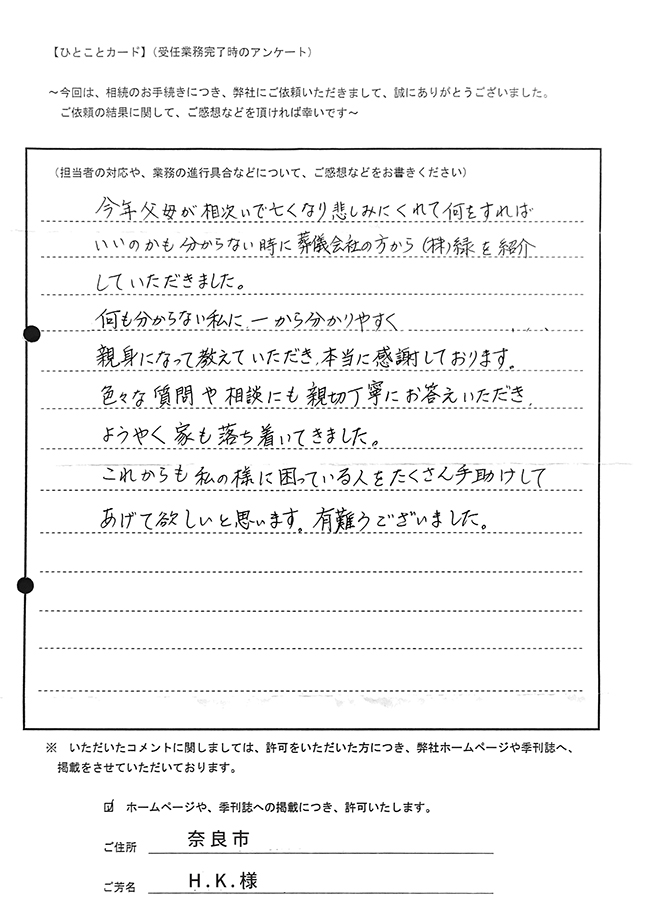 【ひとことカード】（受任業務完了時のアンケート）
～今回は、相続のお手続きにつき、弊社にご依頼いただきまして、誠にありがとうございました。
ご依頼の結果に関して、ご感想などを頂ければ幸いです～
（担当者の対応や、業務の進行具合などについて、ご感想などをお書きください）
今年父母が相次いで亡くなり悲しみにくれて何をすれば
いいのかも分からない時に葬儀会社の方から（株）緑を紹介
していただきました。
何も分からない私に、一から分かりやすく
親身になって教えていただき、本当に感謝しております。
色々な質問や相談にも親切丁寧にお答えいただき、
ようやく家も落ち着いてきました。
これからも私の様に困っている人をたくさん手助けして
あげて欲しいと思います。有難うございました。
※　いただいたコメントに関しましては、許可をいただいた方につき、弊社ホームページや季刊誌へ、
掲載をさせていただいております。
☑ ホームページや、季刊誌への掲載につき、許可いたします。
ご住所 奈良市
ご芳名 H.K.様